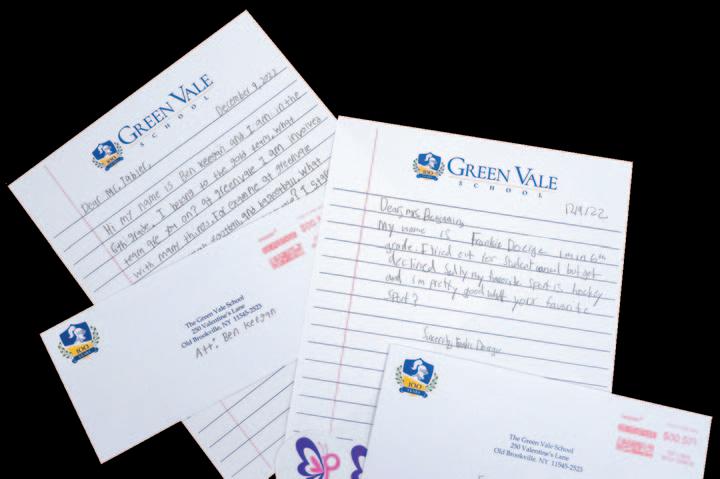 GREEN VALE
SCHOOL
December 9, 2022
Dear Mr. Tabler,
Hi my name is Ben Keegan and I am in the
6th grade. I belong to the gold team, what
team are you on? at greenvale I am involved
with many things. For example at greenvale
football, and basketball. What
? I
GREEN VALE
SCHOOL
12/9/22
Dear, mrs.
My name is Frankie I am in 6th
grade. I tried out for student council but got
declined sadly. my favorite sport is hockey
and im pretty good your favorite
sport?
Sincerly, Frankie
100
The Green Vale School
250 Valentine's Lane
Old Brookville, NY 11545-2523
Att: Ben Keegan
100
The Green Vale School
250 Valentine's Lane
Old Brookville, NY 11545-2523